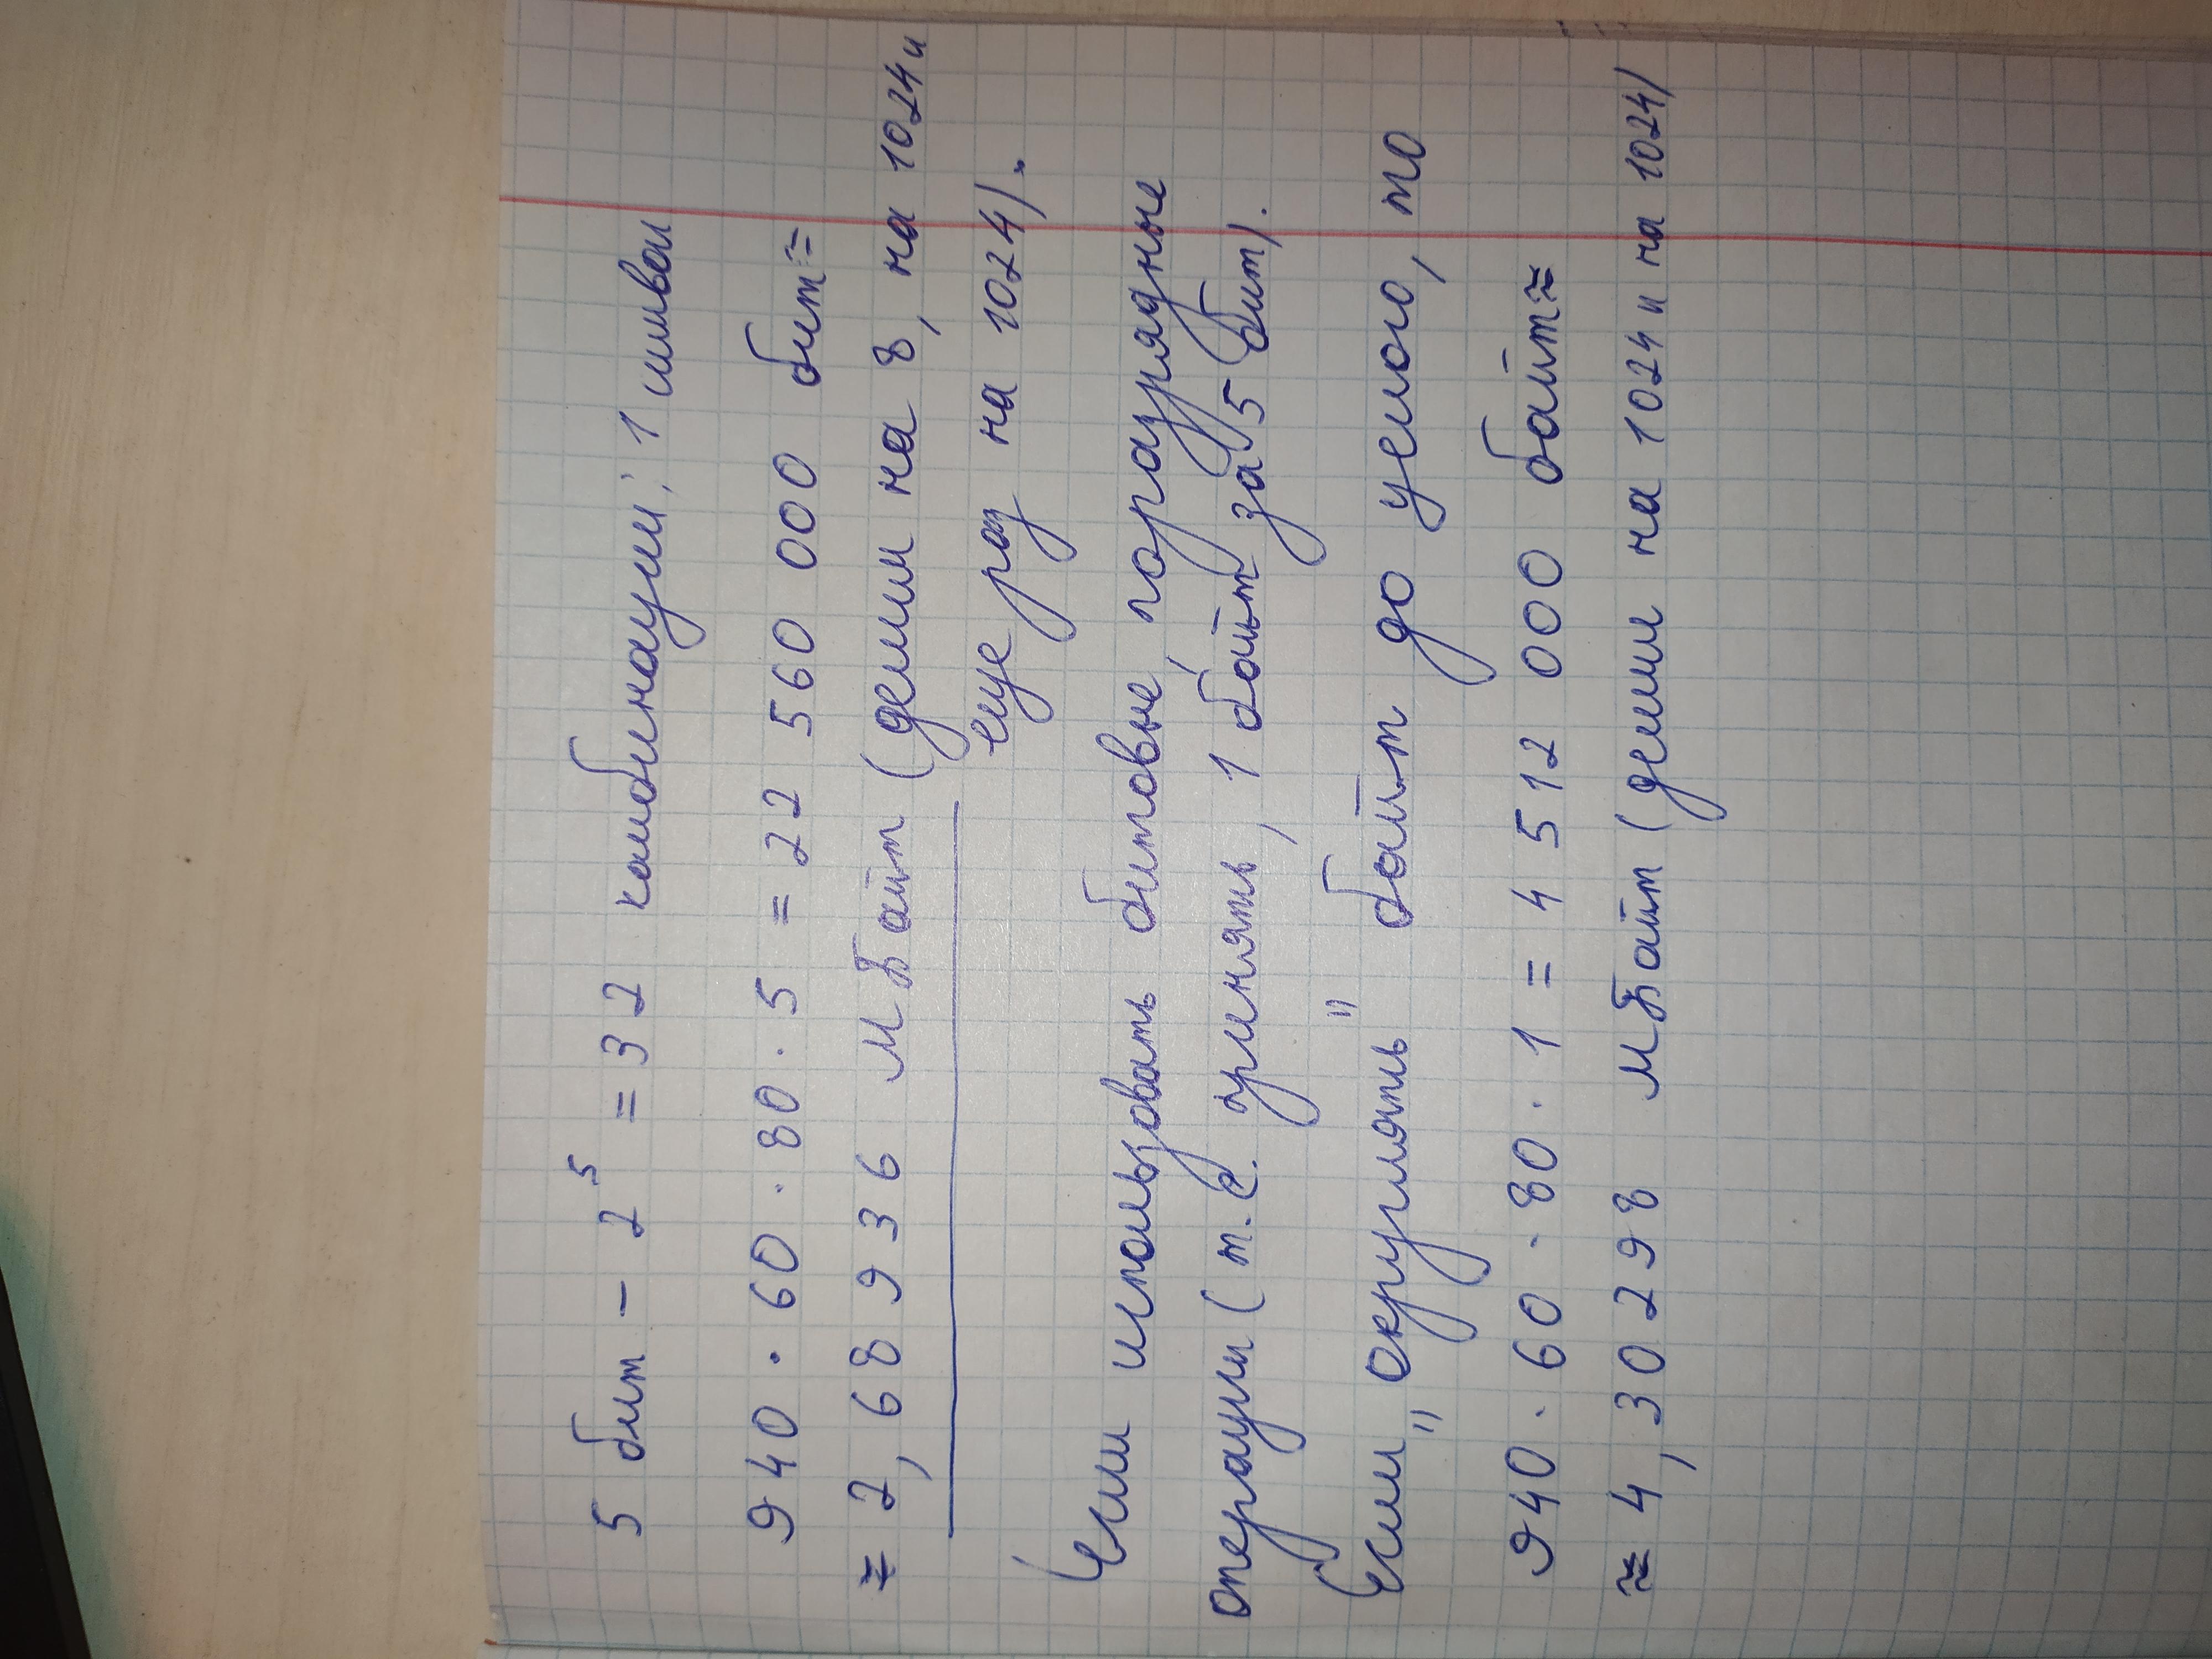 5 бит – 2⁵ = 32 комбинации; 1 символ
940 · 60 · 80 · 5 = 22 560 000 бит =
= 2,68 8936 МБайт (делим на 8, на 1024 и
еще раз на 1024).
Если использовать битовые поразрядные
операции (т.е. уменять, 1 байт за 5 бит).
Если "округлять" байт до целого, то
940 · 60 · 80 · 1 = 4 512 000 байт ≈
≈ 4,30298 МБайт (делим на 1024 и на 1024)